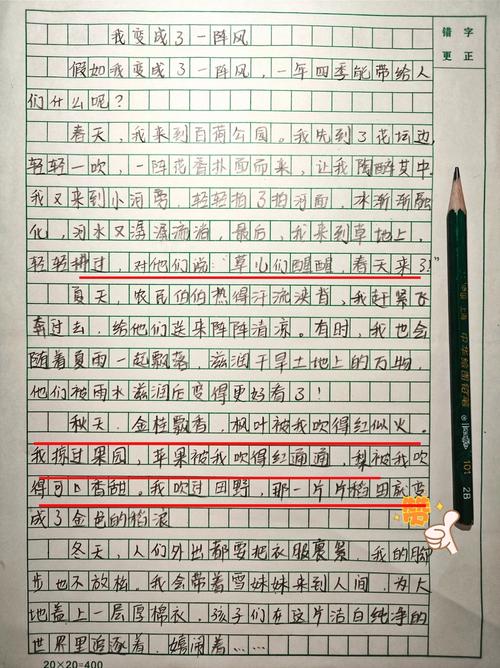 我变成了一阵风
假如我变成了一阵风，一年四季能带给人
们什么呢？
春天，我来到百荷公园。我先到了花坛边，
轻轻一吹，一阵花香扑面而来，让我陶醉其中。
我又来到小河旁，轻轻拍了拍河面，冰渐渐融
化，河水又潺潺流淌，最后，我来到草地上，
轻轻拂过，对他们说“草儿们醒醒，春天来了！”
夏天，农民伯伯热得汗流浃背，我赶紧飞
奔过去，给他们送来阵阵清凉。有时，我也会
随着夏雨一起飘落，滋润干旱土地上的万物，
他们被雨水滋润后变得更好看了！
秋天，金桂飘香，枫叶被我吹得红似火。
我掠过果园，苹果被我吹得红通通，梨被我吹
得可口香甜。我吹过田野，那一片片稻田就变
成了金色的稻浪
冬天，人们外出都要把衣服裹紧，我的脚
步也不放松。我会带着雪妹妹来到人间，为大
地盖上一层厚棉衣，孩子们在这片洁白纯净的
世界里追逐着，嬉闹着……
20×20=400
错字
更正
中华绘图铅笔
101
2B
赞